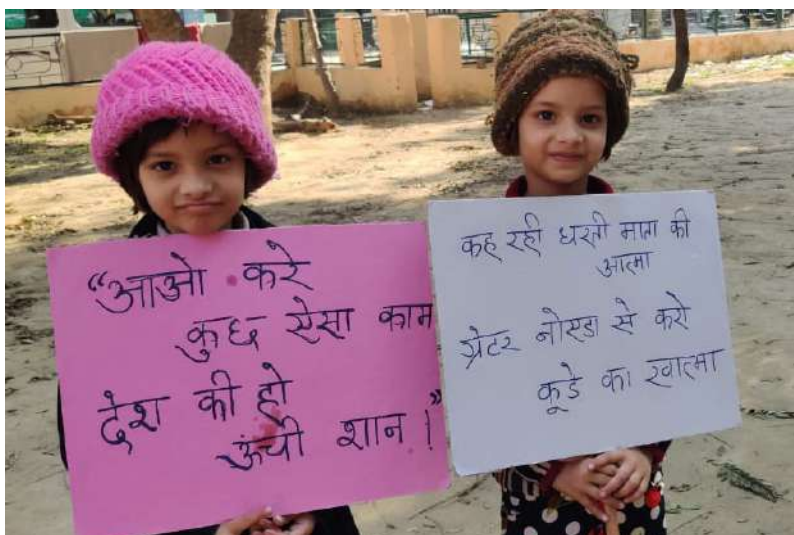 “आओ करे
कुछ ऐसा काम
देश की हो
ऊंची शान ।”
कह रही धरती माता की
आत्मा
ग्रेटर नोएडा से करो
कूडे का खात्मा